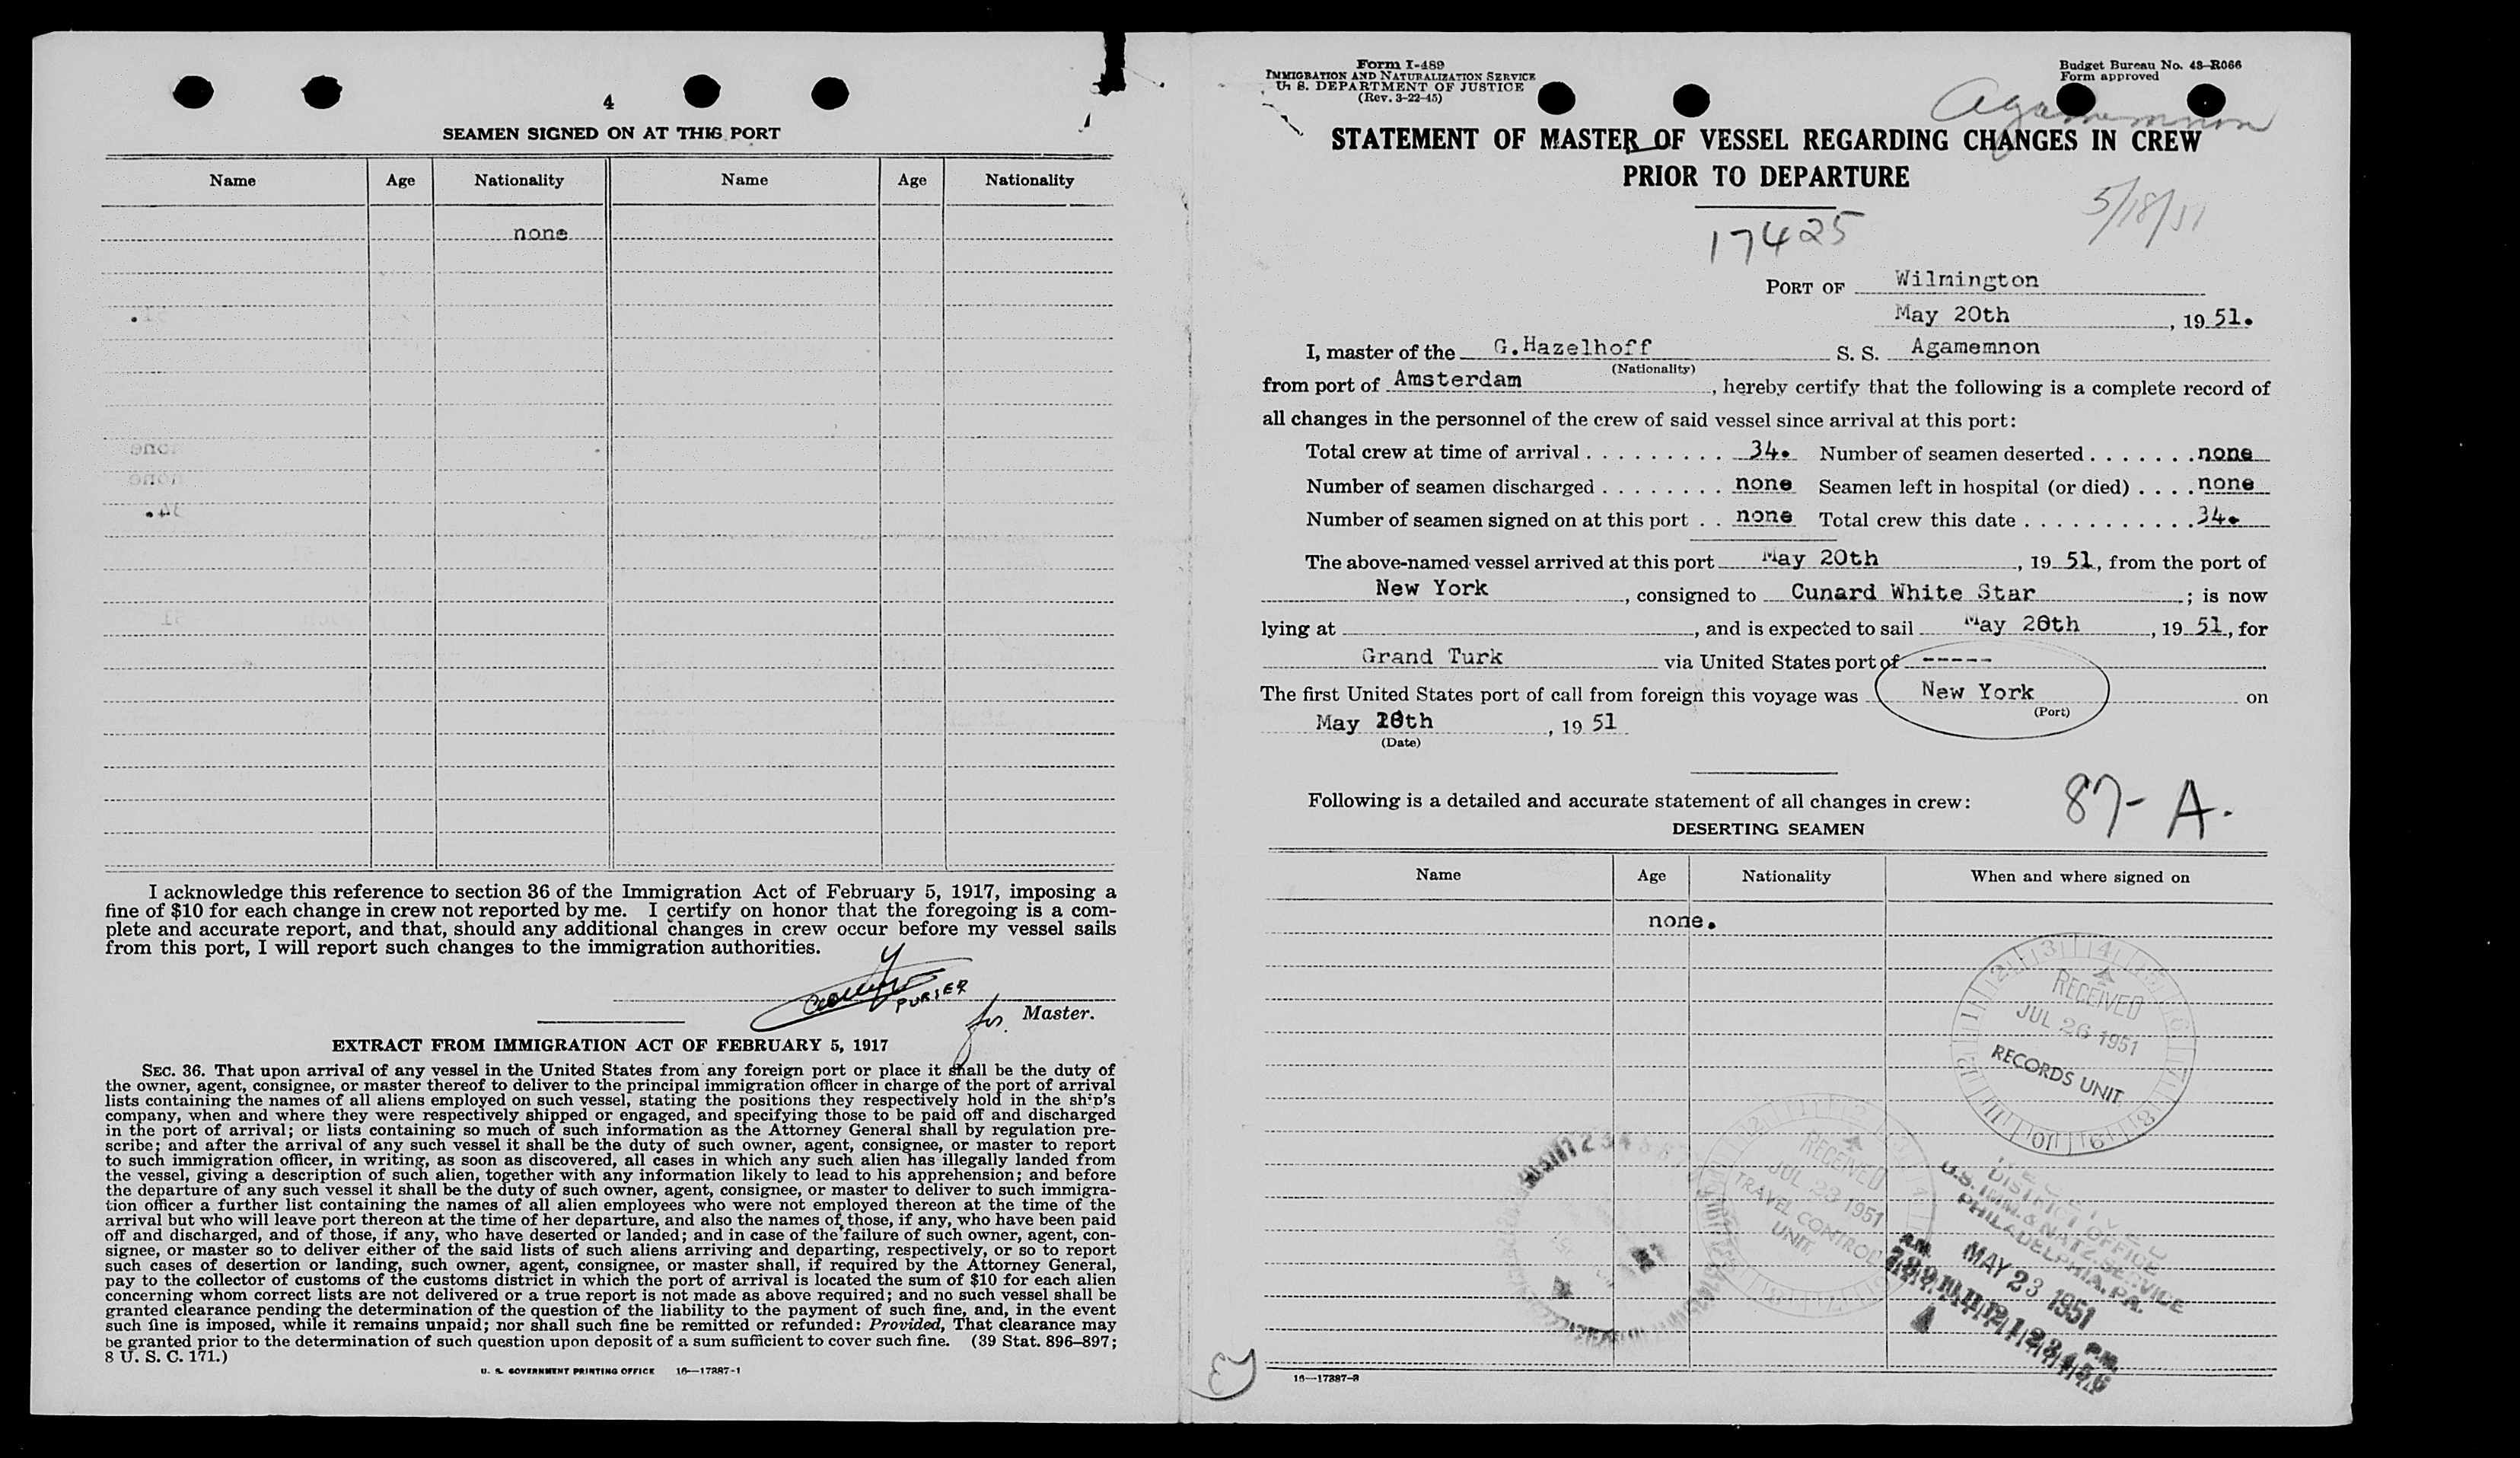 4
SEAMEN SIGNED ON AT THIS PORT
Name Age Nationality Name Age Nationality
none
I acknowledge this reference to section 36 of the Immigration Act of February 5, 1917, imposing a
fine of $10 for each change in crew not reported by me. I certify on honor that the foregoing is a com-
plete and accurate report, and that, should any additional changes in crew occur before my vessel sails
from this port, I will report such changes to the immigration authorities.
PURSER
for Master.
EXTRACT FROM IMMIGRATION ACT OF FEBRUARY 5, 1917
SEC. 36. That upon arrival of any vessel in the United States from any foreign port or place it shall be the duty of
the owner, agent, consignee, or master thereof to deliver to the principal immigration officer in charge of the port of arrival
lists containing the names of all aliens employed on such vessel, stating the positions they respectively hold in the ship's
company, when and where they were respectively shipped or engaged, and specifying those to be paid off and discharged
in the port of arrival; or lists containing so much of such information as the Attorney General shall by regulation pre-
scribe; and after the arrival of any such vessel it shall be the duty of such owner, agent, consignee, or master to report
to such immigration officer, in writing, as soon as discovered, all cases in which any such alien has illegally landed from
the vessel, giving a description of such alien, together with any information likely to lead to his apprehension; and before
the departure of any such vessel it shall be the duty of such owner, agent, consignee, or master to deliver to such immigra-
tion officer a further list containing the names of all alien employees who were not employed thereon at the time of the
arrival but who will leave port thereon at the time of her departure, and also the names of those, if any, who have been paid
off and discharged, and of those, if any, who have deserted or landed; and in case of the failure of such owner, agent, con-
signee, or master so to deliver either of the said lists of such aliens arriving and departing, respectively, or so to report
such cases of desertion or landing, such owner, agent, consignee, or master shall, if required by the Attorney General,
pay to the collector of customs of the customs district in which the port of arrival is located the sum of $10 for each alien
concerning whom correct lists are not delivered or a true report is not made as above required; and no such vessel shall be
granted clearance pending the determination of the question of the liability to the payment of such fine, and, in the event
such fine is imposed, while it remains unpaid; nor shall such fine be remitted or refunded: Provided, That clearance may
be granted prior to the determination of such question upon deposit of a sum sufficient to cover such fine. (39 Stat. 896–897;
8 U. S. C. 171.)
U. S. GOVERNMENT PRINTING OFFICE 16—17387-1
Form I-489
IMMIGRATION AND NATURALIZATION SERVICE
U. S. DEPARTMENT OF JUSTICE
(Rev. 3-22-45)
Budget Bureau No. 43-R066
Form approved
Agamemnon
STATEMENT OF MASTER OF VESSEL REGARDING CHANGES IN CREW
PRIOR TO DEPARTURE
5/18/51
17425
PORT OF Wilmington
May 20th, 19 51.
I, master of the G.Hazelhoff S. S. Agamemnon
(Nationality)
from port of Amsterdam, hereby certify that the following is a complete record of
all changes in the personnel of the crew of said vessel since arrival at this port:
Total crew at time of arrival . . . . . . . . . 34. Number of seamen deserted . . . . . . . none
Number of seamen discharged . . . . . . . . none Seamen left in hospital (or died) . . . . none
Number of seamen signed on at this port . . none Total crew this date . . . . . . . . . . . 34.
The above-named vessel arrived at this port May 20th, 19 51, from the port of
New York, consigned to Cunard White Star; is now
lying at , and is expected to sail May 20th, 19 51, for
Grand Turk via United States port of -----
The first United States port of call from foreign this voyage was New York on
(Port)
May 18th, 19 51
(Date)
Following is a detailed and accurate statement of all changes in crew:
87-A.
DESERTING SEAMEN
Name Age Nationality When and where signed on
none.
RECEIVED
JUL 26 1951
RECORDS UNIT
RECEIVED
JUL 23 1951
TRAVEL CONTROL
UNIT
RECEIVED
DISTRICT OFFICE
U.S. IMM. & NATZ. SERVICE
PHILADELPHIA, PA.
MAY 23 1951
A.M. P.M.
7 8 9 10 11 12 1 2 3 4 5 6
16—17387-3